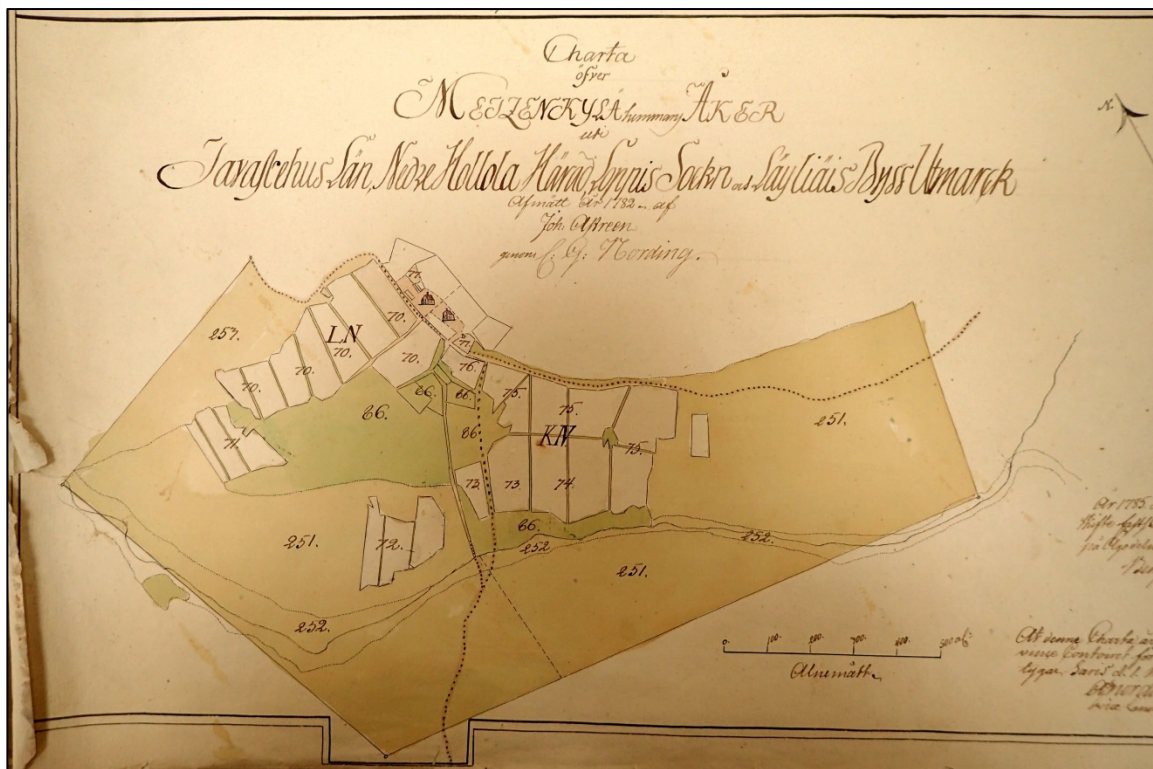 Charta
öfver
METZENKYLÄ hemmans ÅKER
uti
Tavastehus Län, Nedre Hollola Härad, Loppis Sockn och Läyliäis Byss Utmarck
Afmätt År 1782 af
Joh: Astreen
genom C. G: Nording.
N.
77.
257.
LN
70.
70.
70.
70.
70.
70.
71.
77.
76.
66.
66.
66.
66.
75.
75.
75.
KN
251.
72.
73.
74.
66.
251.
72.
252.
252.
251.
252.
År 1785
0. 100. 200. 300. 400. 500 al:
Alnemått.
At denna Charta